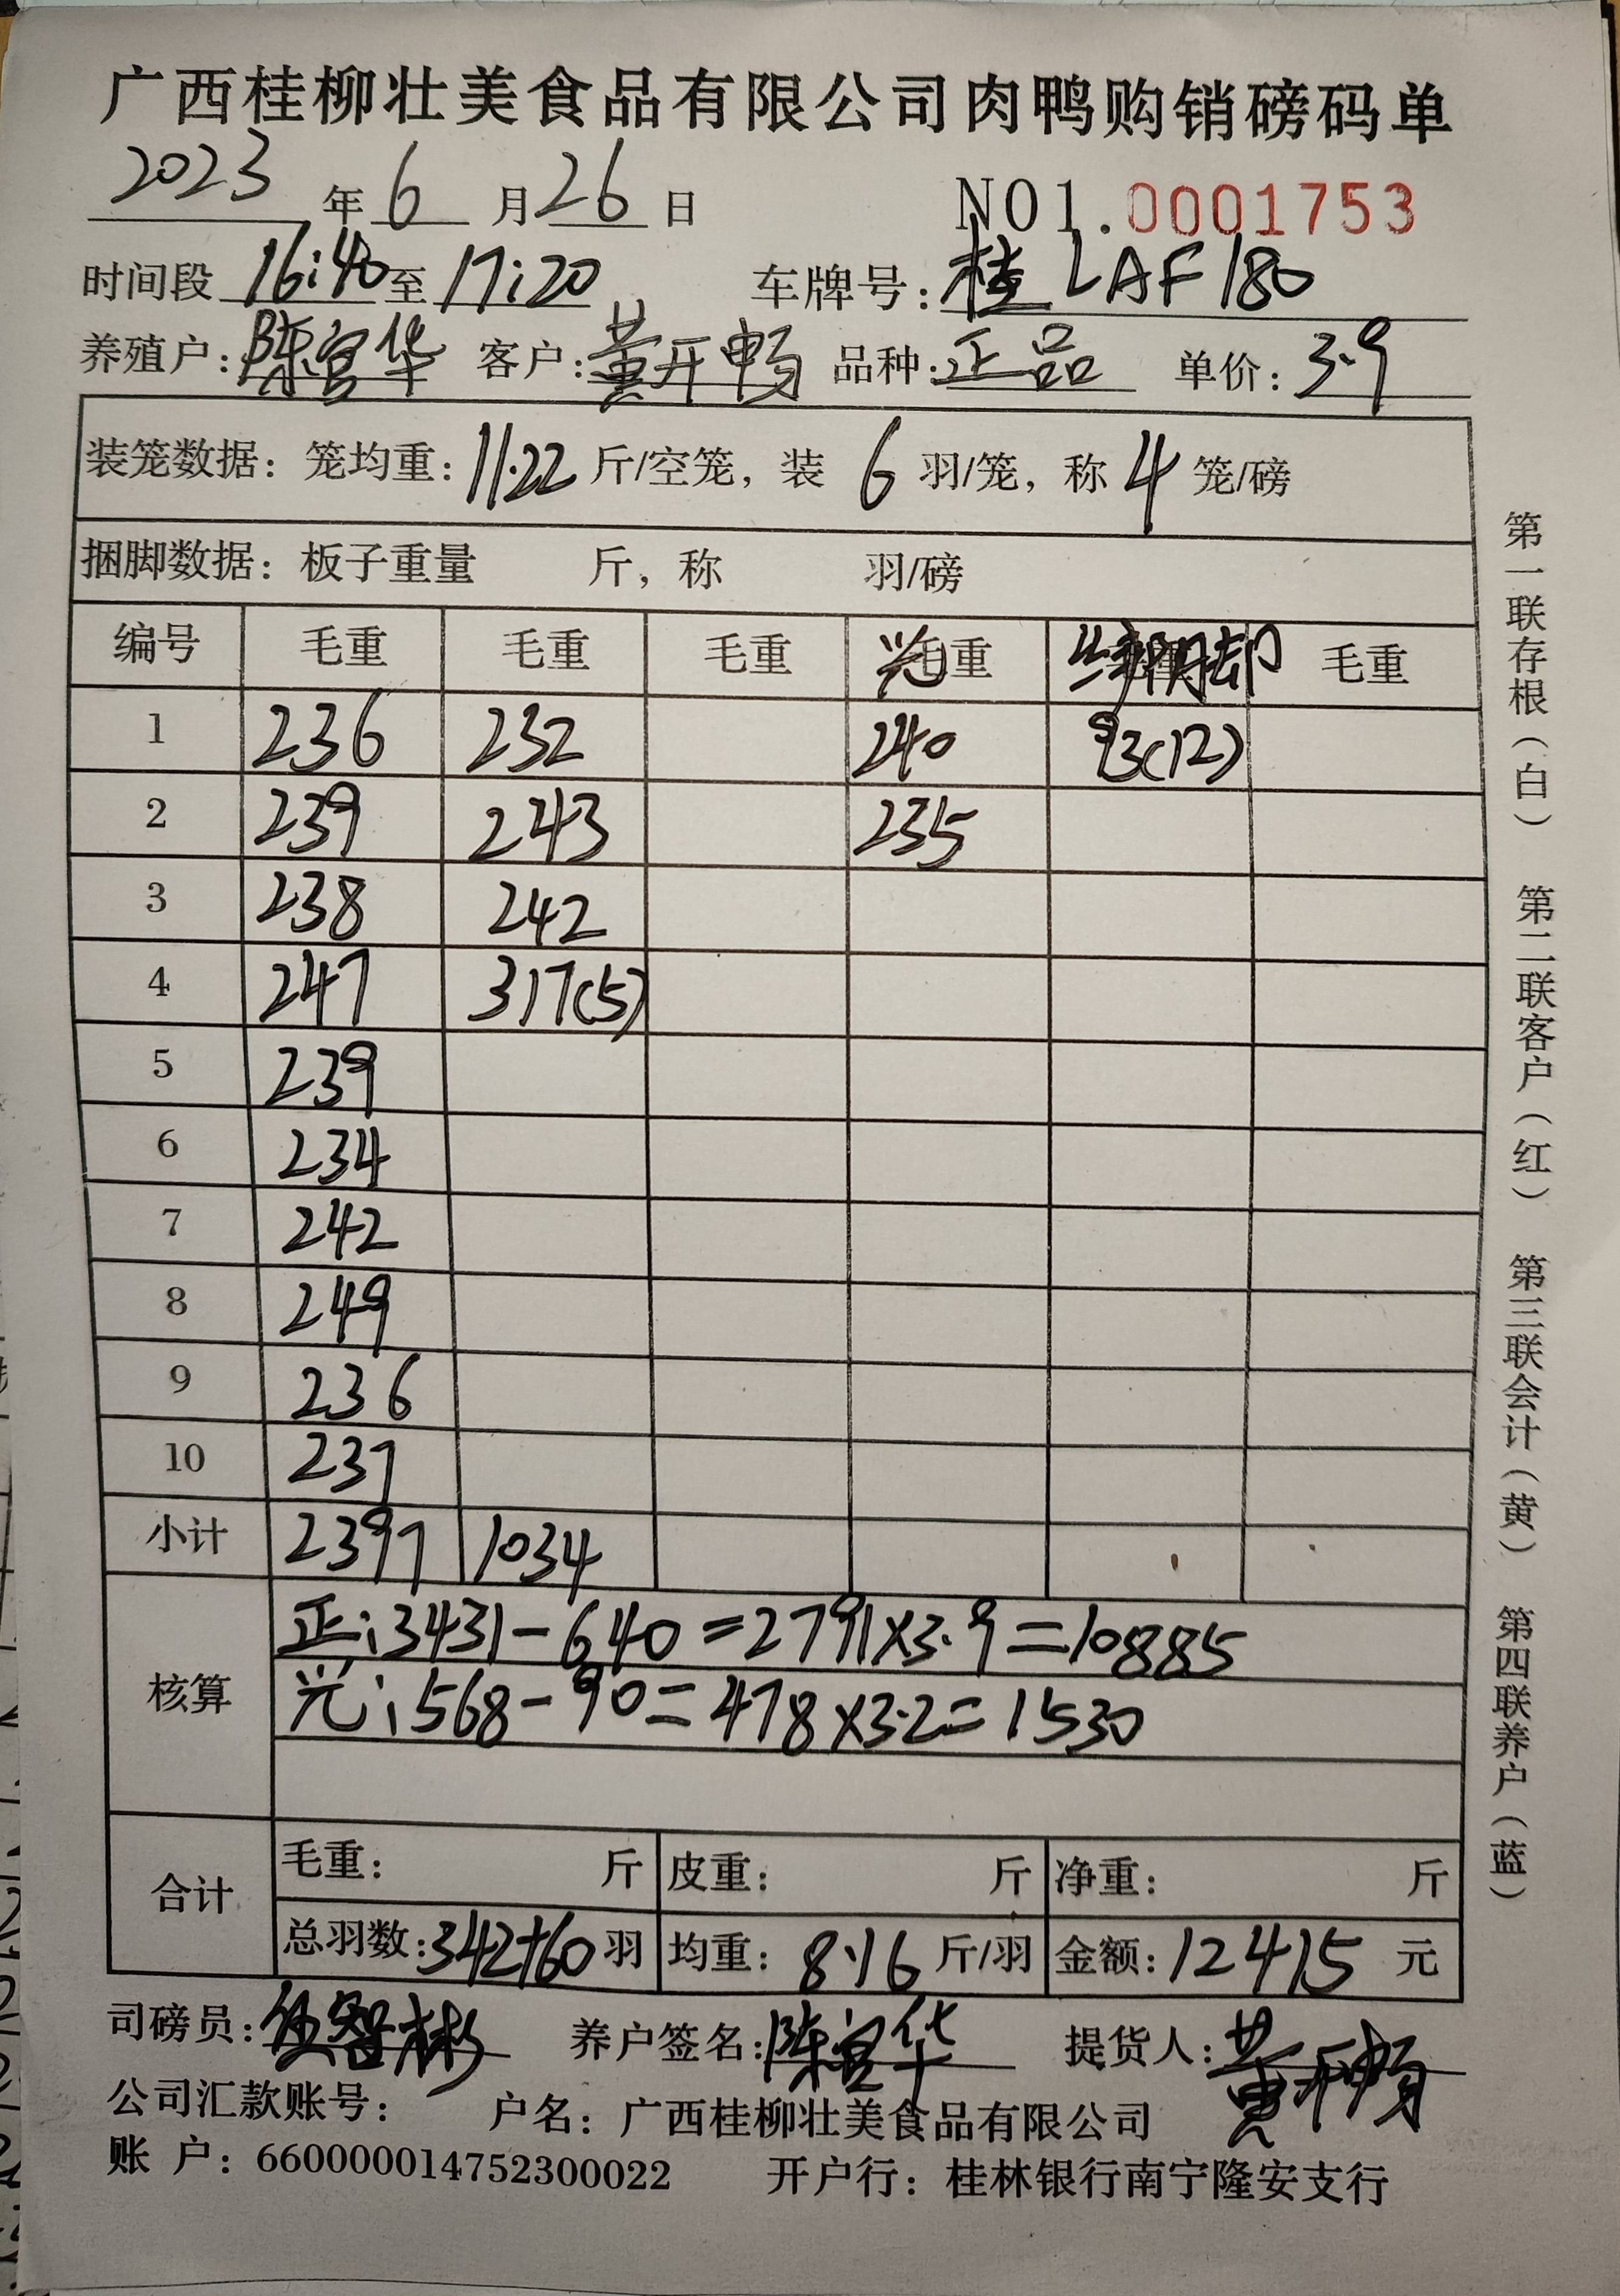 广西桂柳壮美食品有限公司肉鸭购销磅码单
2023年6月26日 NO1.0001753
时间段16:40至17:20 车牌号:桂LAF180
养殖户:陈宫华 客户:黄开畅 品种:正品 单价:3.9
装笼数据:笼均重:11.22斤/空笼,装6羽/笼,称4笼/磅
捆脚数据:板子重量 斤,称 羽/磅
编号 毛重 毛重 毛重 毛重 毛重
1 236 232 240 93(12)
2 239 243 235
3 238 242
4 247 317(5)
5 239
6 234
7 242
8 249
9 236
10 237
小计 2397 1034
正:3431-640=2791×3.9=10885
核算
光:568-90=478×3.2=1530
毛重: 斤 皮重: 斤 净重: 斤
合计
总羽数:342+60羽 均重:8.16斤/羽 金额:12415元
司磅员:伍智彬 养户签名:陈宫华 提货人:黄开畅
公司汇款账号: 户名:广西桂柳壮美食品有限公司
账 户:660000014752300022 开户行:桂林银行南宁隆安支行
第一联存根(白) 第二联客户(红) 第三联会计(黄) 第四联养户(蓝)